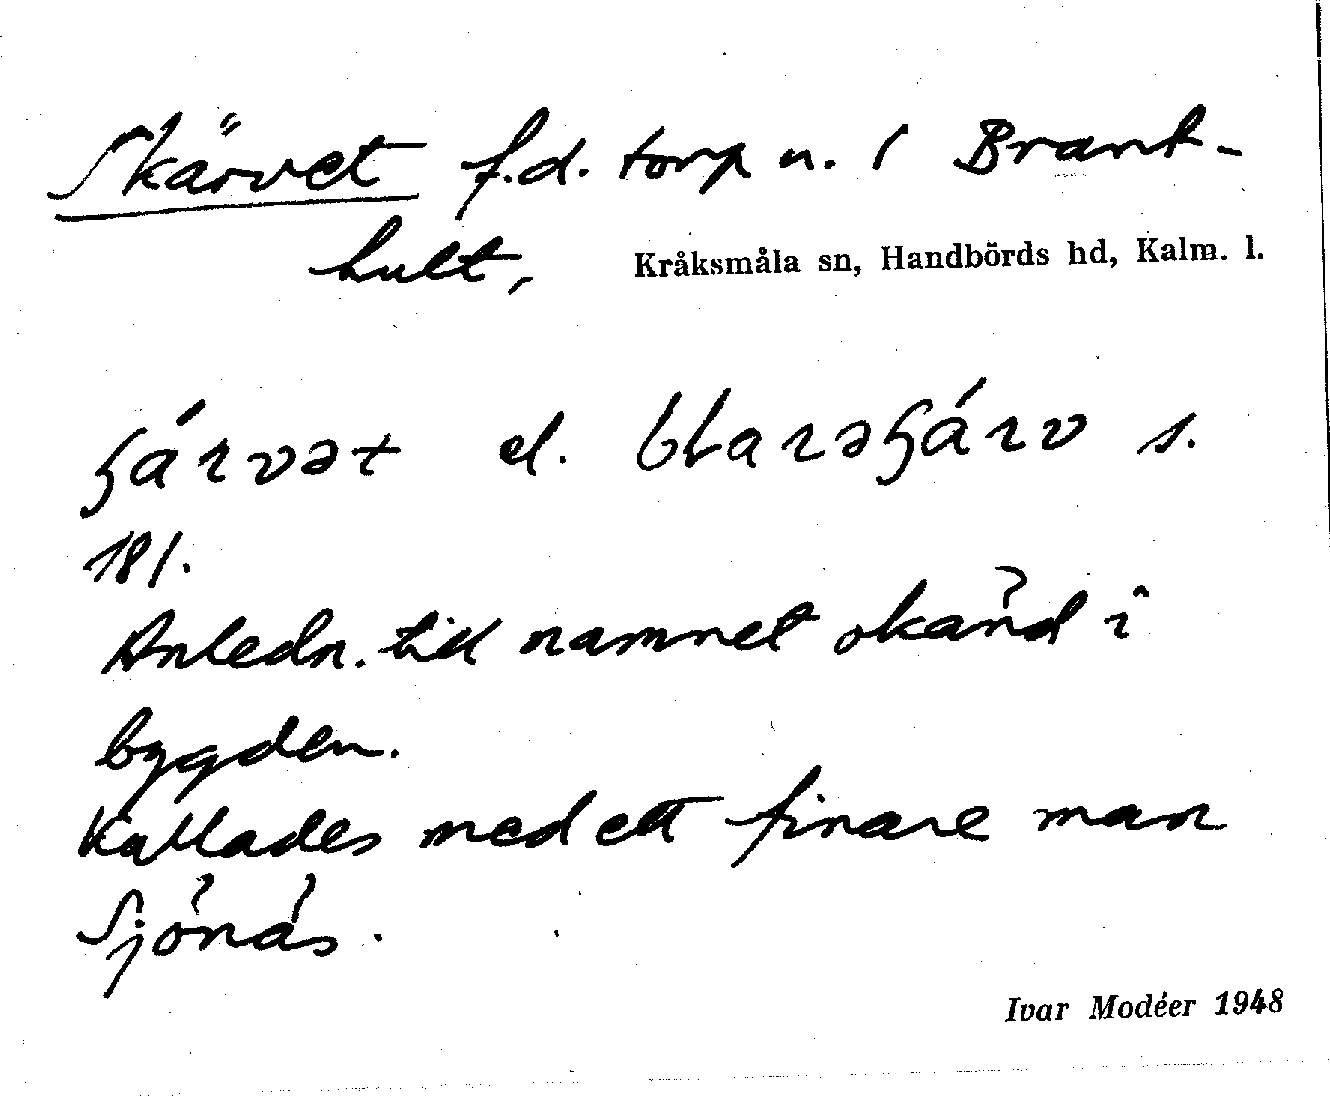 Skärvet f.d. torp u. 1 Brant-
hult, Kråksmåla sn, Handbörds hd, Kalm. l.
ɧárvət el. blarəɧárv s.
181.
Anledn. till namnet okänd i
bygden.
Kallades med ett finare man
Sjönäs.
Ivar Modéer 1948